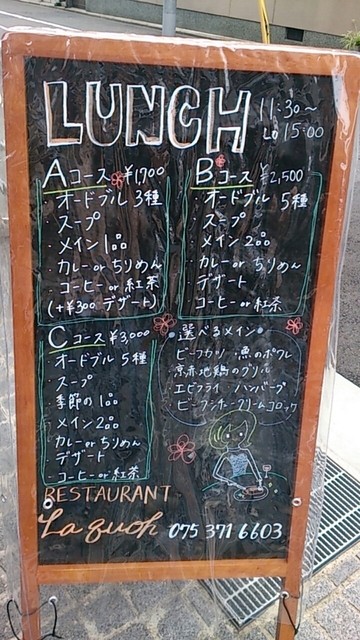 LUNCH
11:30〜
LO 15:00
Aコース ¥1700
・オードブル 3種
・スープ
・メイン 1品
・カレー or ちりめん
・コーヒー or 紅茶
(+¥300 デザート)
Bコース ¥2,500
・オードブル 5種
・スープ
・メイン 2品
・カレー or ちりめん
・デザート
・コーヒー or 紅茶
Cコース ¥3,000
・オードブル 5種
・スープ
・季節の1品
・メイン 2品
・カレー or ちりめん
・デザート
・コーヒー or 紅茶
・選べるメイン・
ビーフカツ ・魚のポワレ
京赤地鶏のグリル
エビフライ ハンバーグ
ビーフシチュー クリームコロッケ
RESTAURANT
La quoh 075 371 6603